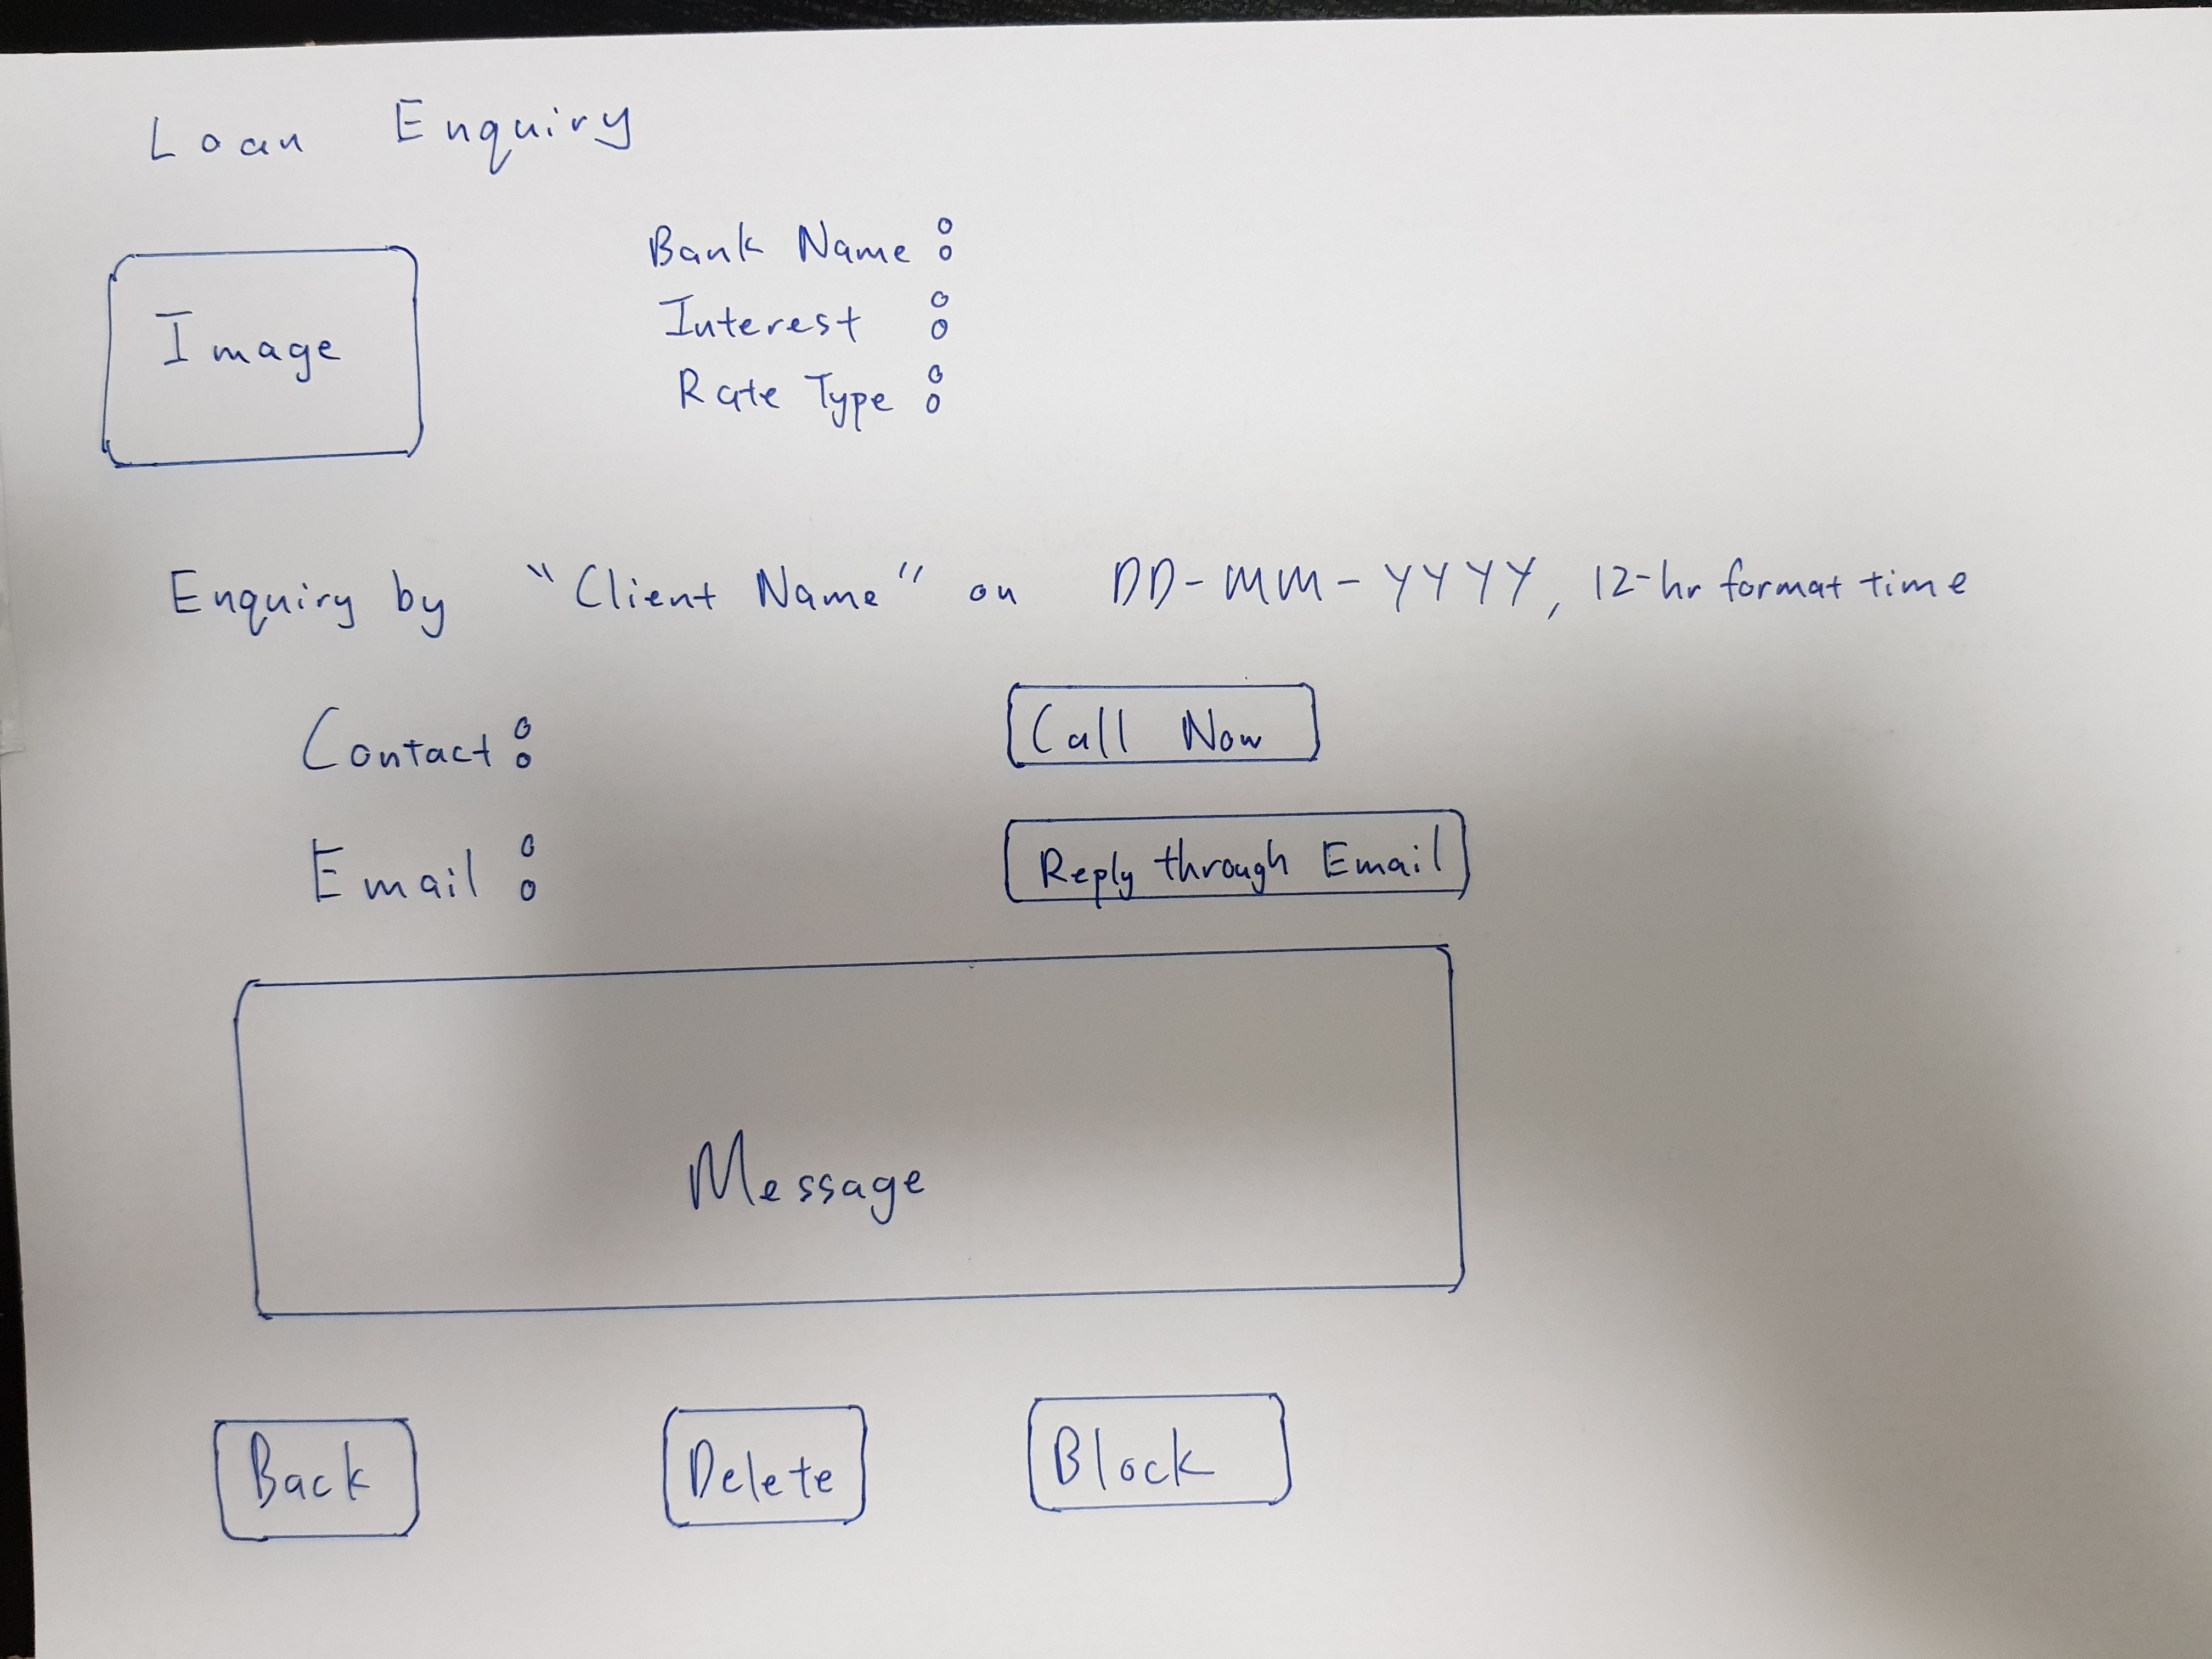 Loan Enquiry
Image
Bank Name :
Interest :
Rate Type :
Enquiry by "Client Name" on DD-MM-YYYY, 12-hr format time
Contact :
Call Now
Email :
Reply through Email
Message
Back
Delete
Block